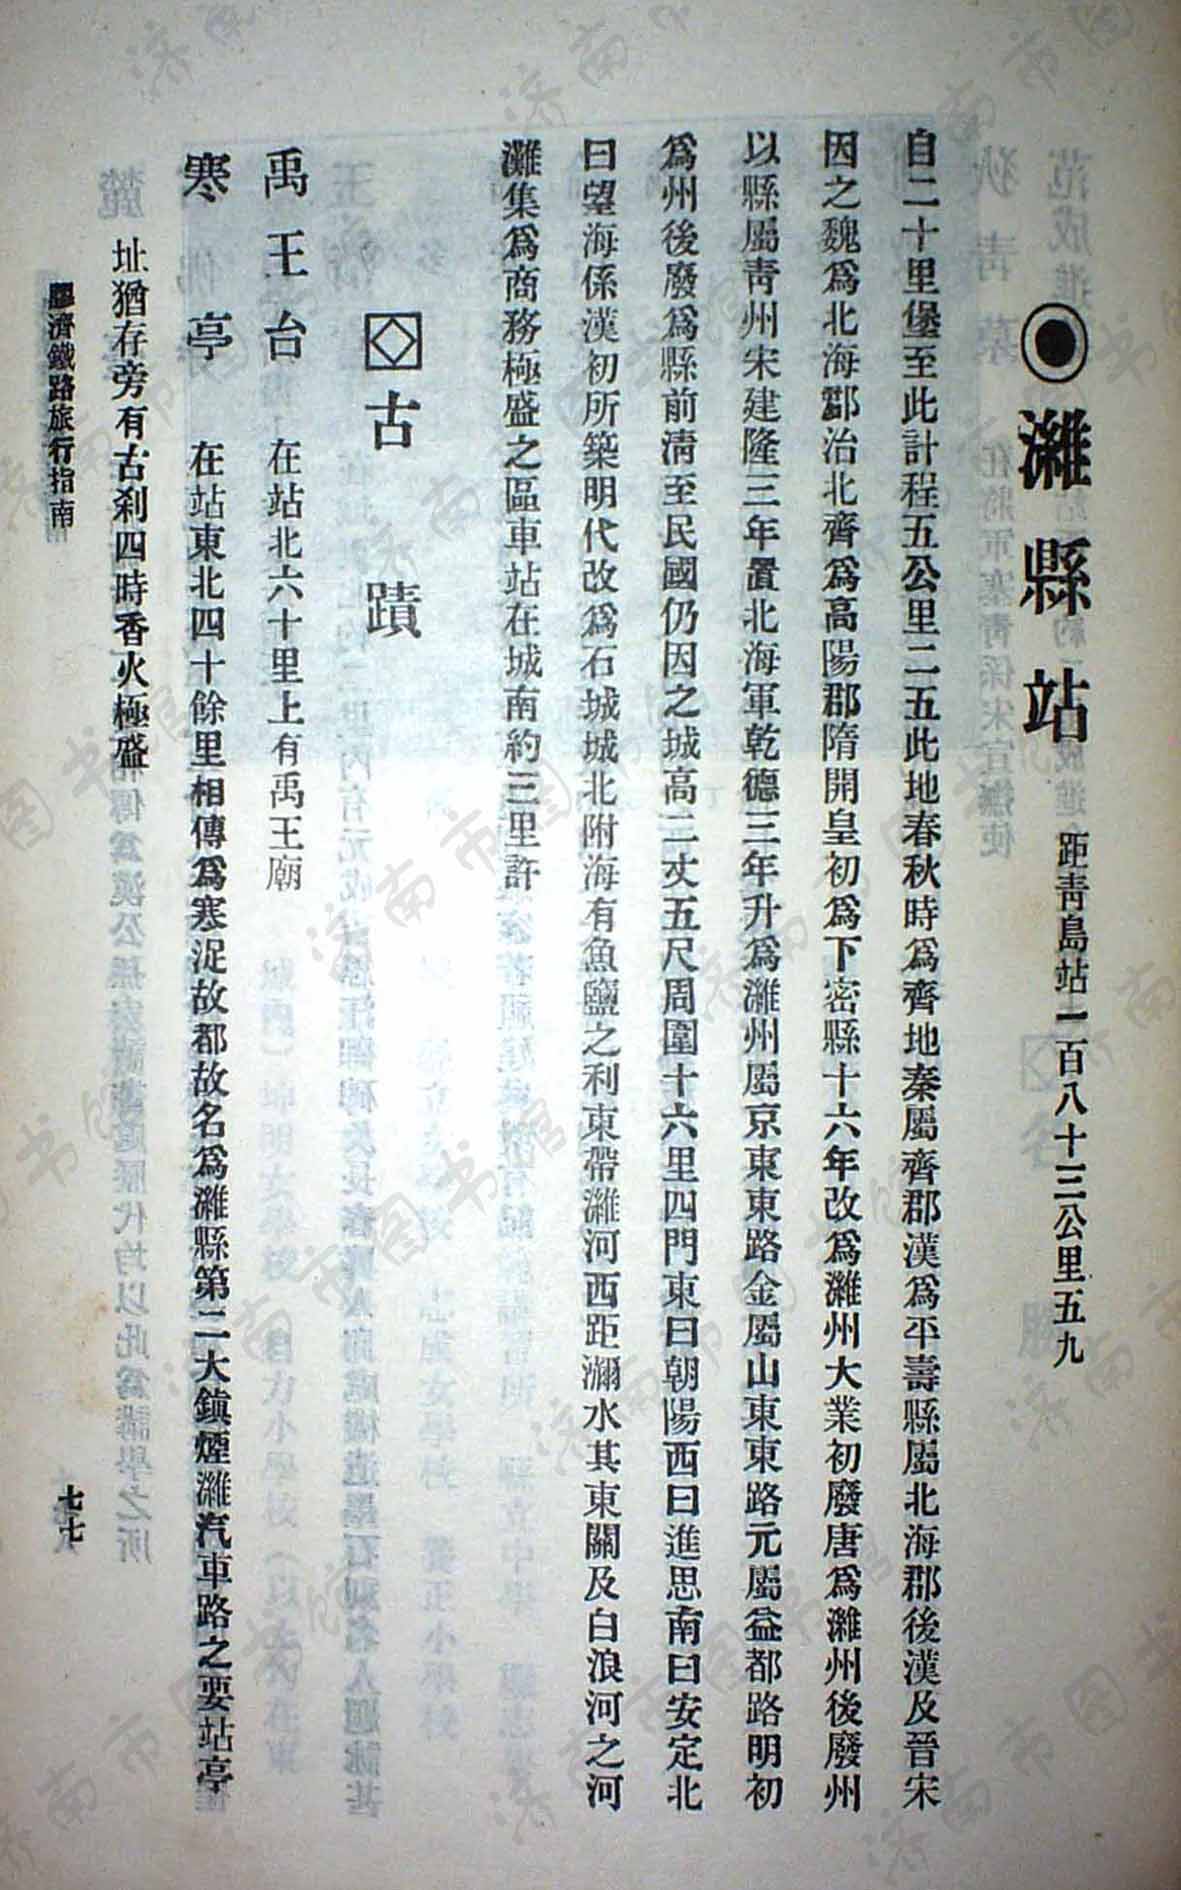 濰縣站　距靑島站一百八十三公里五九
自二十里堡至此計程五公里二五此地春秋時爲齊地秦屬齊郡漢爲平壽縣屬北海郡後漢及晉宋
因之魏爲北海郡治北齊爲高陽郡隋開皇初爲下密縣十六年改爲濰州大業初廢唐爲濰州後廢州
以縣屬靑州宋建隆三年置北海軍乾德三年升爲濰州屬京東東路金屬山東東路元屬益都路明初
爲州後廢爲縣前淸至民國仍因之城高二丈五尺周圍十六里四門東曰朝陽西曰進思南曰安定北
曰望海係漢初所築明代改爲石城城北附海有魚鹽之利東帶濰河西距瀰水其東關及白浪河之河
灘集爲商務極盛之區車站在城南約三里許
古蹟
禹王台　在站北六十里上有禹王廟
寒亭　在站東北四十餘里相傳爲寒浞故都故名爲濰縣第二大鎭煙濰汽車路之要站亭
址猶存旁有古刹四時香火極盛
膠濟鐵路旅行指南
七七